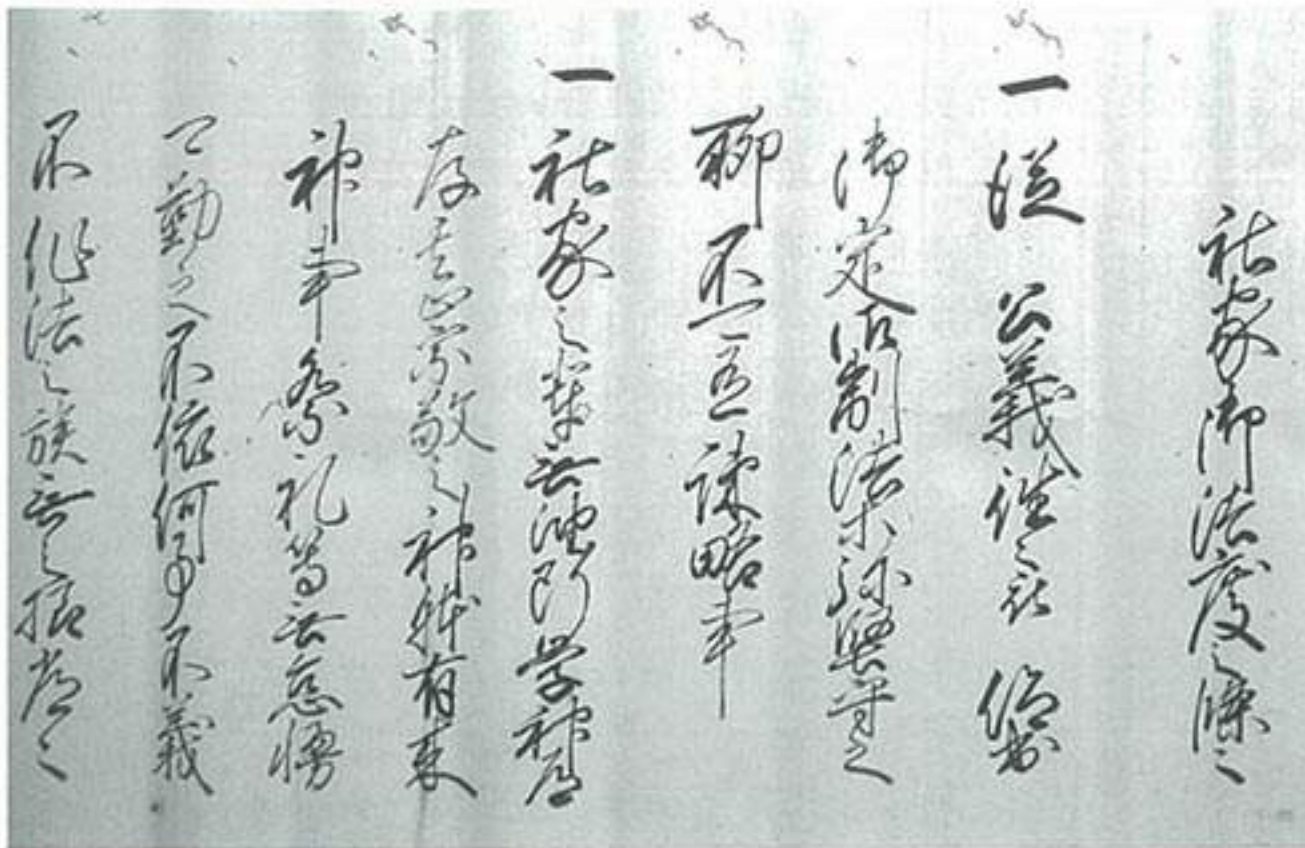 社家御法度之條々
一従 公義往々被 仰出
御定御制法等弥堅守之
聊不可疎略事
一社家之輩無油断学神道
存崇敬之神体有来
神事祭礼等無怠慢
可勤之不依何事不義
不作法之族無之様常々